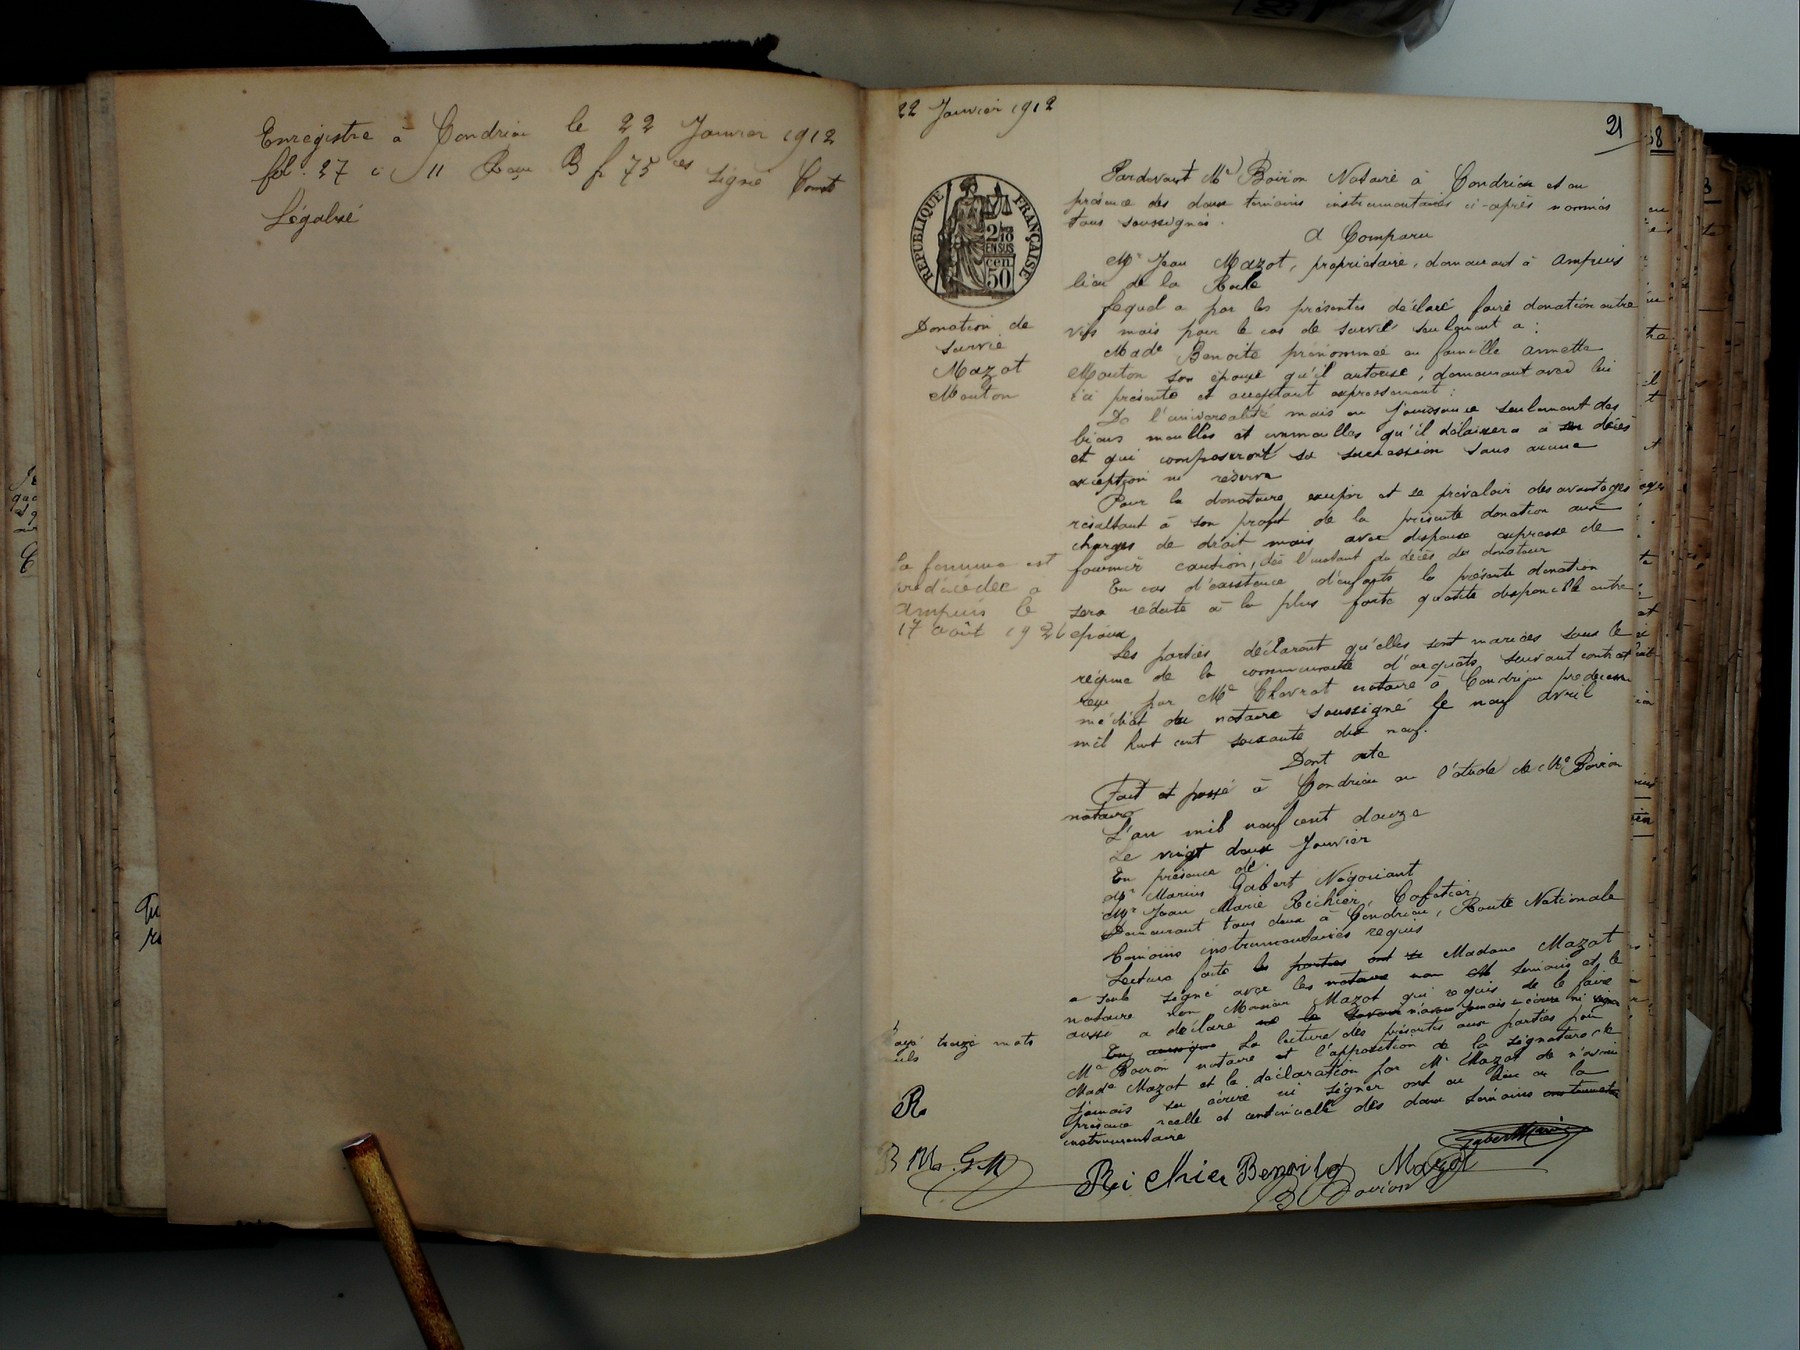 Enregistré à Condrieu le 22 Janvier 1912
fol. 37 c 11 Reçu 3 f 75 ces signé
Légalisé
22 Janvier 1912
21
Pardevant Me Boiron Notaire à Condrieu et en
présence des deux témoins instrumentaires ci-après nommés
tous soussignés.
A Comparu
Mr Jean Mazot, propriétaire, demeurant à Ampuis
lieu de la Roche
Lequel a par les présentes déclaré faire donation entre
vifs mais pour le cas de survie seulement a :
Made Benoite prénommée en famille Annette
Mouton son épouse qu'il autorise, demeurant avec lui
ici présente et acceptant expressément :
De l'universalité mais en jouissance seulement des
biens meubles et immeubles qu'il délaissera à son décès
et qui composeront sa succession sans aucune
exception ni réserve
Pour la donataire, jouir et se prévaloir des avantages
résultant à son profit de la présente donation aux
charges de droit mais avec dispense expresse de
fournir caution, dès l'instant du décès du donateur
En cas d'existence d'enfants la présente donation
sera réduite à la plus forte quotité disponible entre
époux
Les parties déclarent qu'elles sont mariées sous le
régime de la communauté d'acquêts suivant contrat
reçu par Me Chavrot notaire à Condrieu prédécesseur
médiat du notaire soussigné le neuf avril
mil huit cent soixante dix neuf.
Dont acte
Fait et passé à Condrieu en l'étude de Me Boiron
notaire
L'an mil neuf cent douze
Le vingt deux Janvier
En présence de
Mr Marius Gabert Négociant
Mr Jean Marie Richier, Cafetier,
Demeurant tous deux à Condrieu, Route Nationale
témoins instrumentaires requis
Lecture faite les parties ont Madame Mazot
a seule signé avec les notaire non témoins et le
notaire non Monsieur Mazot qui requis de le faire
aussi a déclaré ne le savoir n'avoir jamais su écrire ni signer
La lecture des présentes aux parties par
Me Boiron notaire et l'apposition de la signature de
Made Mazot et la déclaration par Mr Mazot de n'avoir
jamais su écrire ni signer ont eu lieu en la
présence réelle et continuelle des deux témoins instrumentaire
instrumentaire
RÉPUBLIQUE FRANÇAISE
2/10
EN SUS
cen
50
Donation de
survie
Mazot
Mouton
la femme est
prédécédée à
Ampuis le
17 août 1926
Rayé treize mots
nuls
R.
B M. G M
Gabert Marius
Richier Benoite Mazot
B Boiron